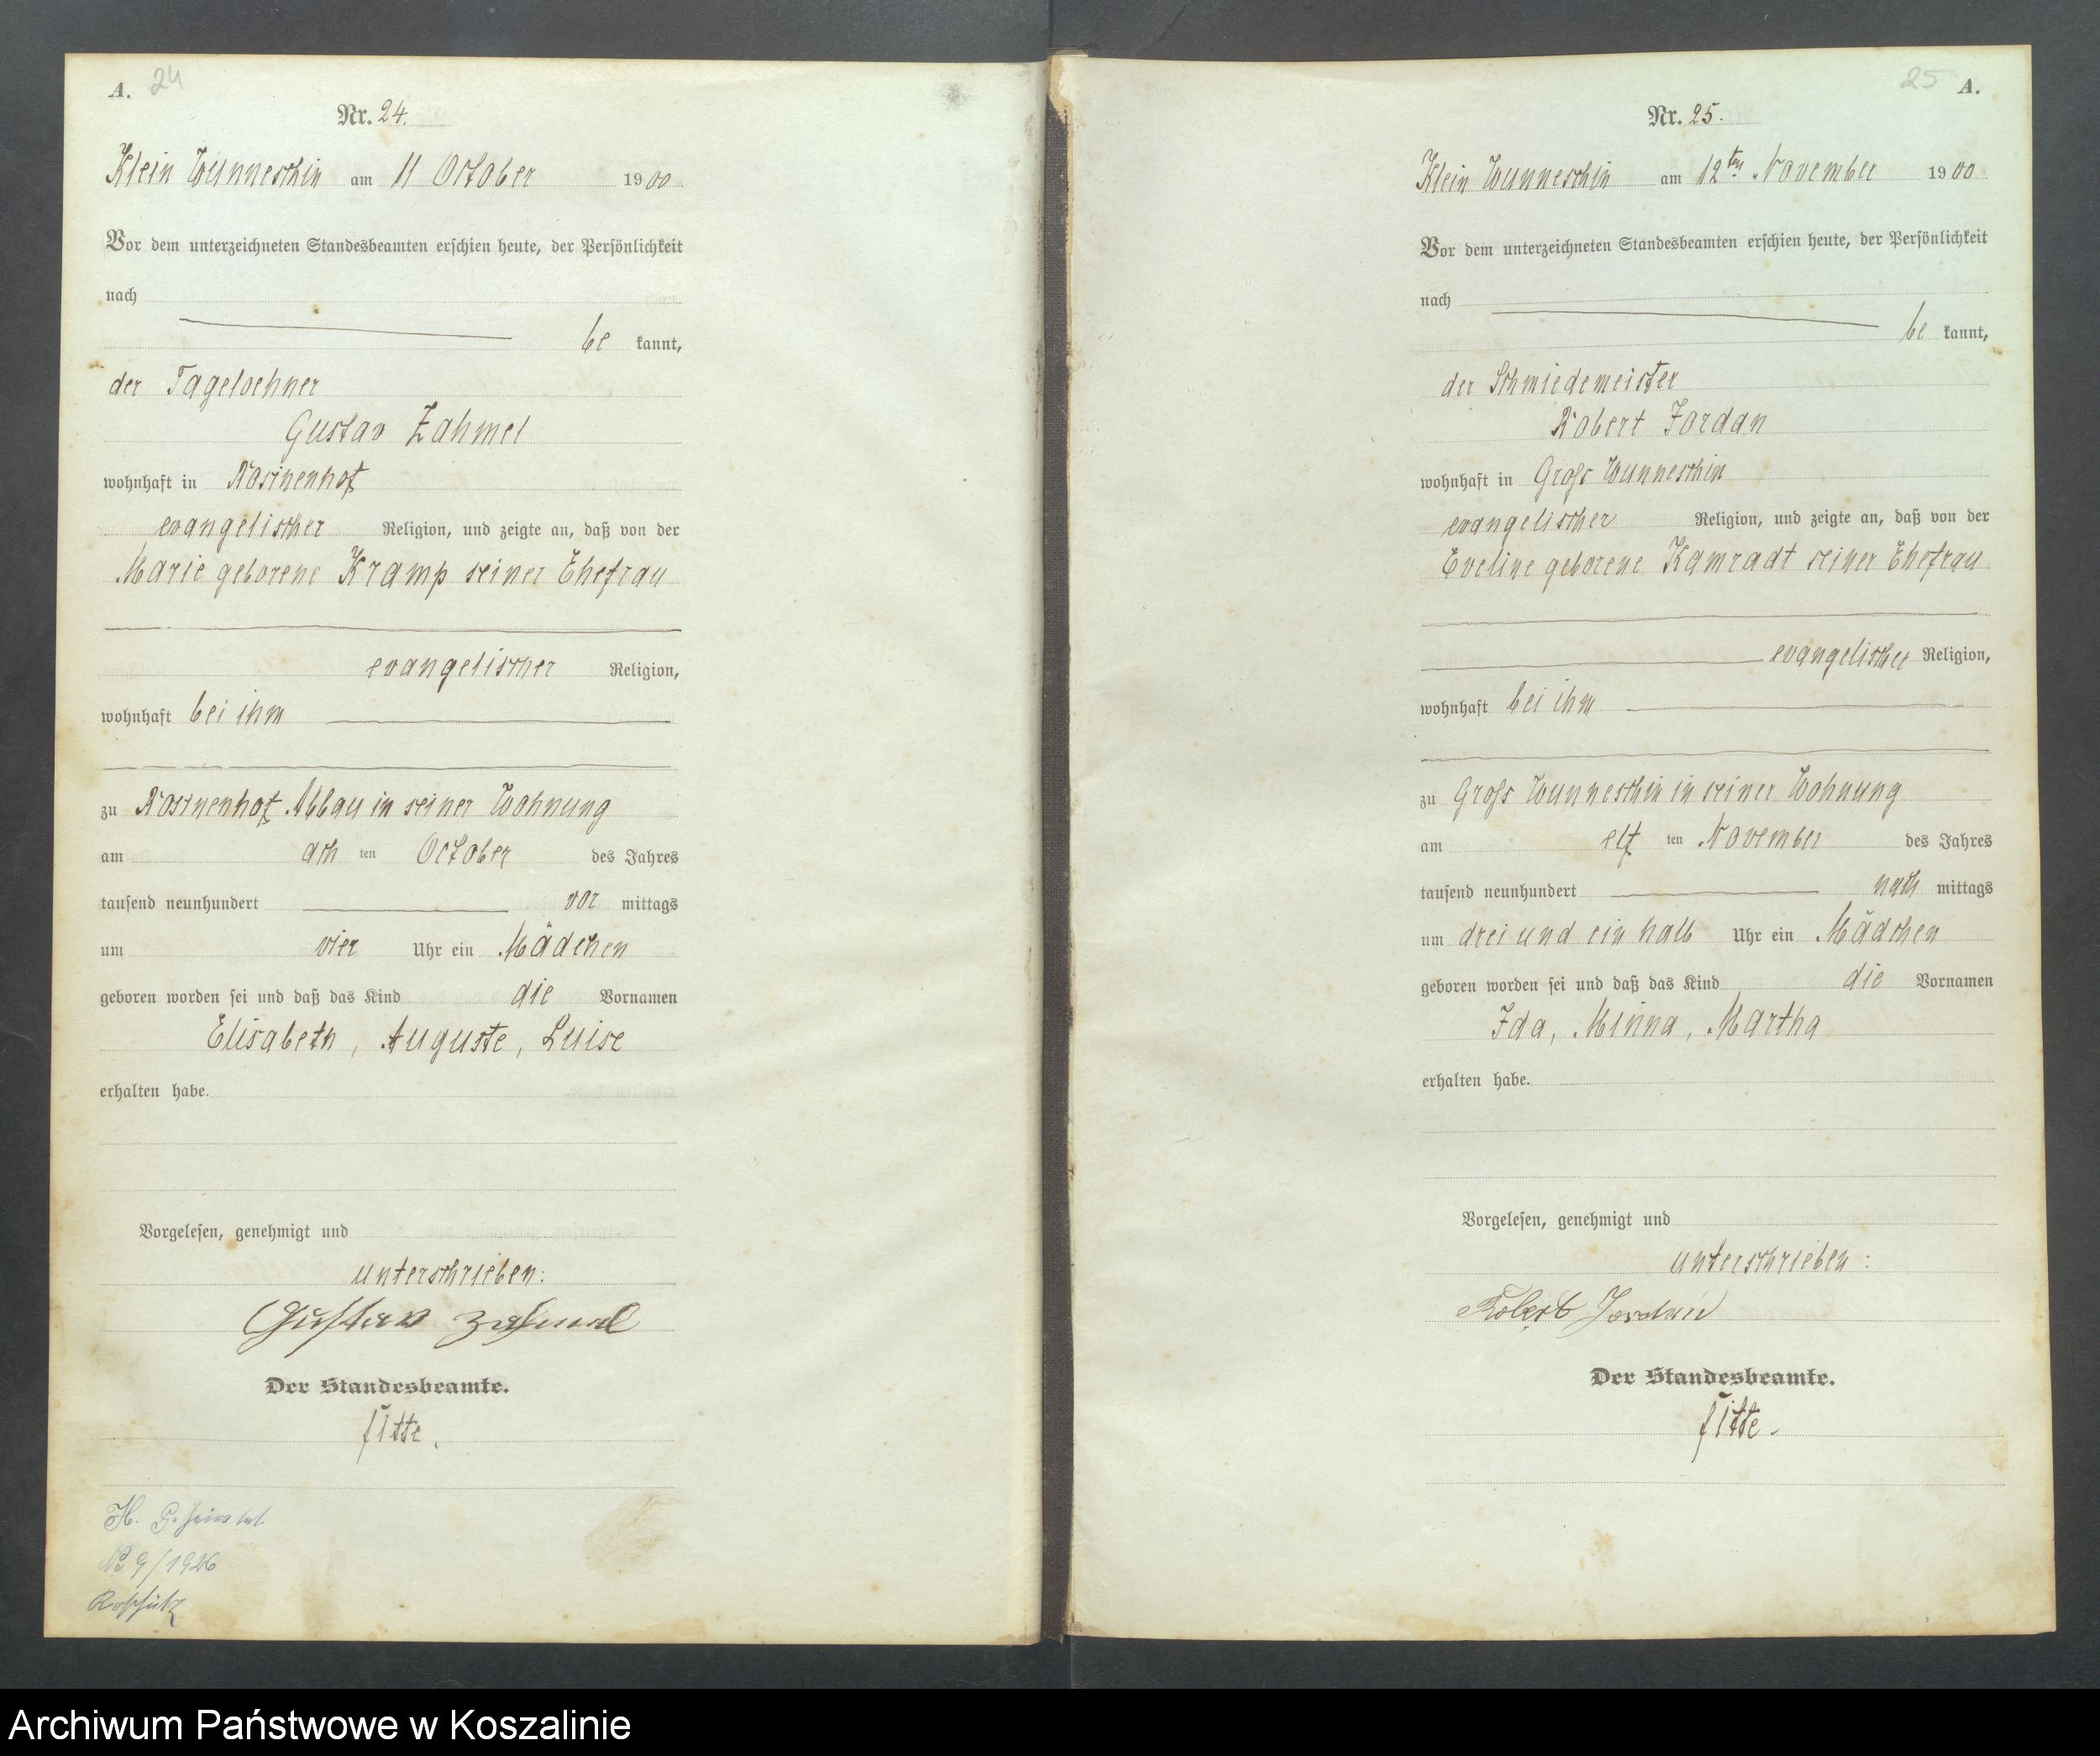 A. 24
Nr. 24.
Klein Wunneschin am 11 October 1900
Vor dem unterzeichneten Standesbeamten erschien heute, der Persönlichkeit
nach
be kannt,
der Tageloehner
Gustav Zahmel
wohnhaft in Rosinenhof
evangelischer Religion, und zeigte an, daß von der
Marie geborene Kramp seiner Ehefrau
evangelischer Religion,
wohnhaft bei ihm
zu Rosinenhof Abbau in seiner Wohnung
am ach ten October des Jahres
tausend neunhundert vor mittags
um vier Uhr ein Mädchen
geboren worden sei und daß das Kind die Vornamen
Elisabeth, Auguste, Luise
erhalten habe.
Vorgelesen, genehmigt und
unterschrieben:
Gustav Zahmel
Der Standesbeamte.
Litte.
H. Geheiratet
No 9/1926
25 A.
Nr. 25.
Klein Wunneschin am 12ten November 1900
Vor dem unterzeichneten Standesbeamten erschien heute, der Persönlichkeit
nach
be kannt,
der Schmiedemeister
Robert Jordan
wohnhaft in Groß Wunneschin
evangelischer Religion, und zeigte an, daß von der
Eveline geborene Kamradt seiner Ehefrau
evangelischer Religion,
wohnhaft bei ihm
zu Groß Wunneschin in seiner Wohnung
am elf ten November des Jahres
tausend neunhundert nach mittags
um drei und ein halb Uhr ein Mädchen
geboren worden sei und daß das Kind die Vornamen
Ida, Minna, Martha
erhalten habe.
Vorgelesen, genehmigt und
unterschrieben:
Robert Jordan
Der Standesbeamte.
Litte.
Archiwum Państwowe w Koszalinie